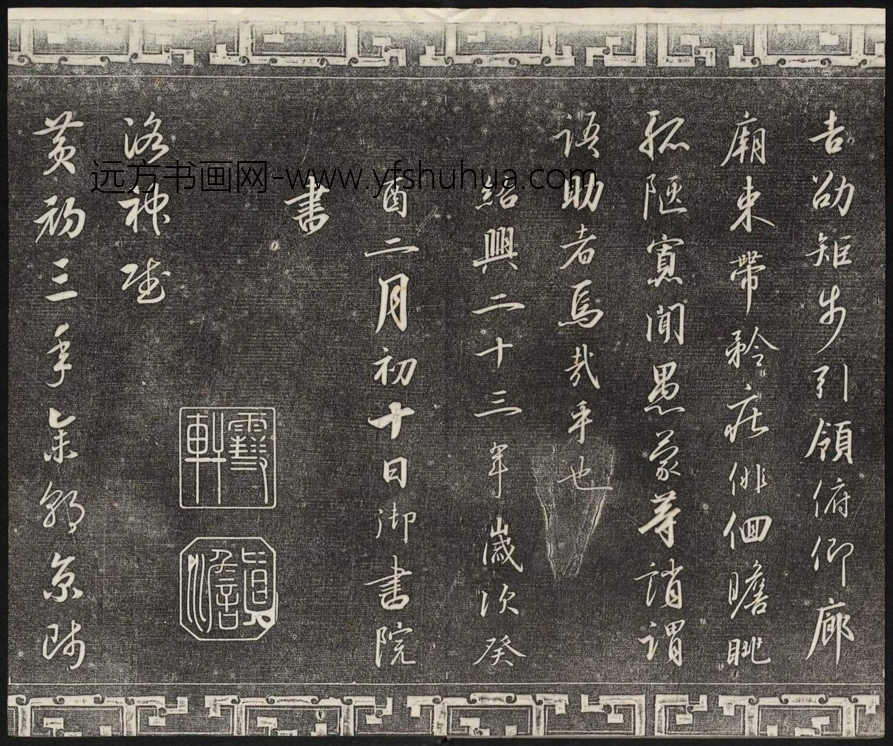 吉劭矩步引領俯仰廊
廟束帶矜莊俳佪瞻眺
孤陋寡聞愚蒙等誚謂
語助者焉哉乎也
紹興二十三年歲次癸
酉二月初十日御書院
書
洛神賦
黃初三年余朝京師
軒
远方书画网-www.yfshuhua.com